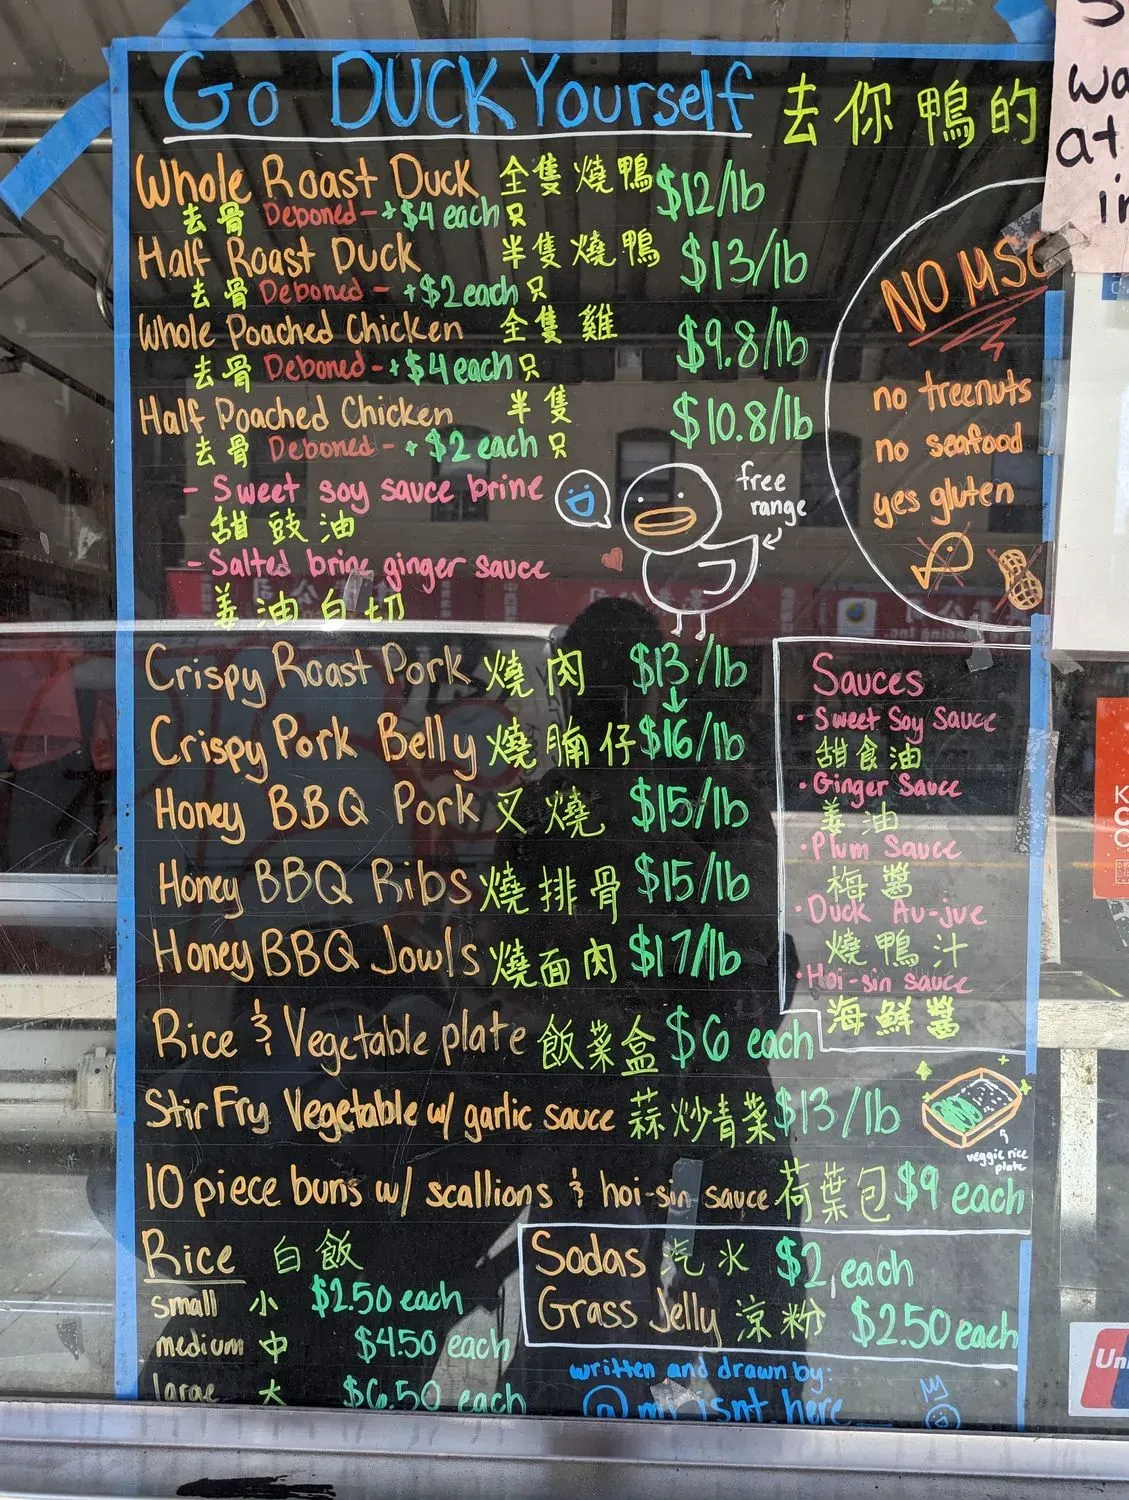 Go DUCK Yourself 去你鴨的
Whole Roast Duck 全隻燒鴨 $12/lb
去骨 Deboned - +$4 each 只
Half Roast Duck 半隻燒鴨 $13/lb
去骨 Deboned - +$2 each 只
Whole Poached Chicken 全隻雞 $9.8/lb
去骨 Deboned - +$4 each 只
Half Poached Chicken 半隻 $10.8/lb
去骨 Deboned - +$2 each 只
- Sweet soy sauce brine
甜豉油
- Salted brine ginger sauce
姜油白切
free
range
NO MSG
no treenuts
no seafood
yes gluten
Crispy Roast Pork 燒肉 $13/lb
Crispy Pork Belly 燒腩仔 $16/lb
Honey BBQ Pork 叉燒 $15/lb
Honey BBQ Ribs 燒排骨 $15/lb
Honey BBQ Jowls 燒面肉 $17/lb
Rice & Vegetable plate 飯菜盒 $6 each
Stir Fry Vegetable w/ garlic sauce 蒜炒青菜 $13/lb
10 piece buns w/ scallions & hoi-sin sauce 荷葉包 $9 each
Sauces
· Sweet Soy Sauce
甜食油
· Ginger Sauce
姜油
· Plum Sauce
梅醬
· Duck Au-jue
燒鴨汁
· Hoi-sin sauce
海鮮醬
veggie rice
plate
Rice 白飯
small 小 $2.50 each
medium 中 $4.50 each
large 大 $6.50 each
Sodas 汽水 $2 each
Grass Jelly 涼粉 $2.50 each
written and drawn by:
wa
at
in
Un